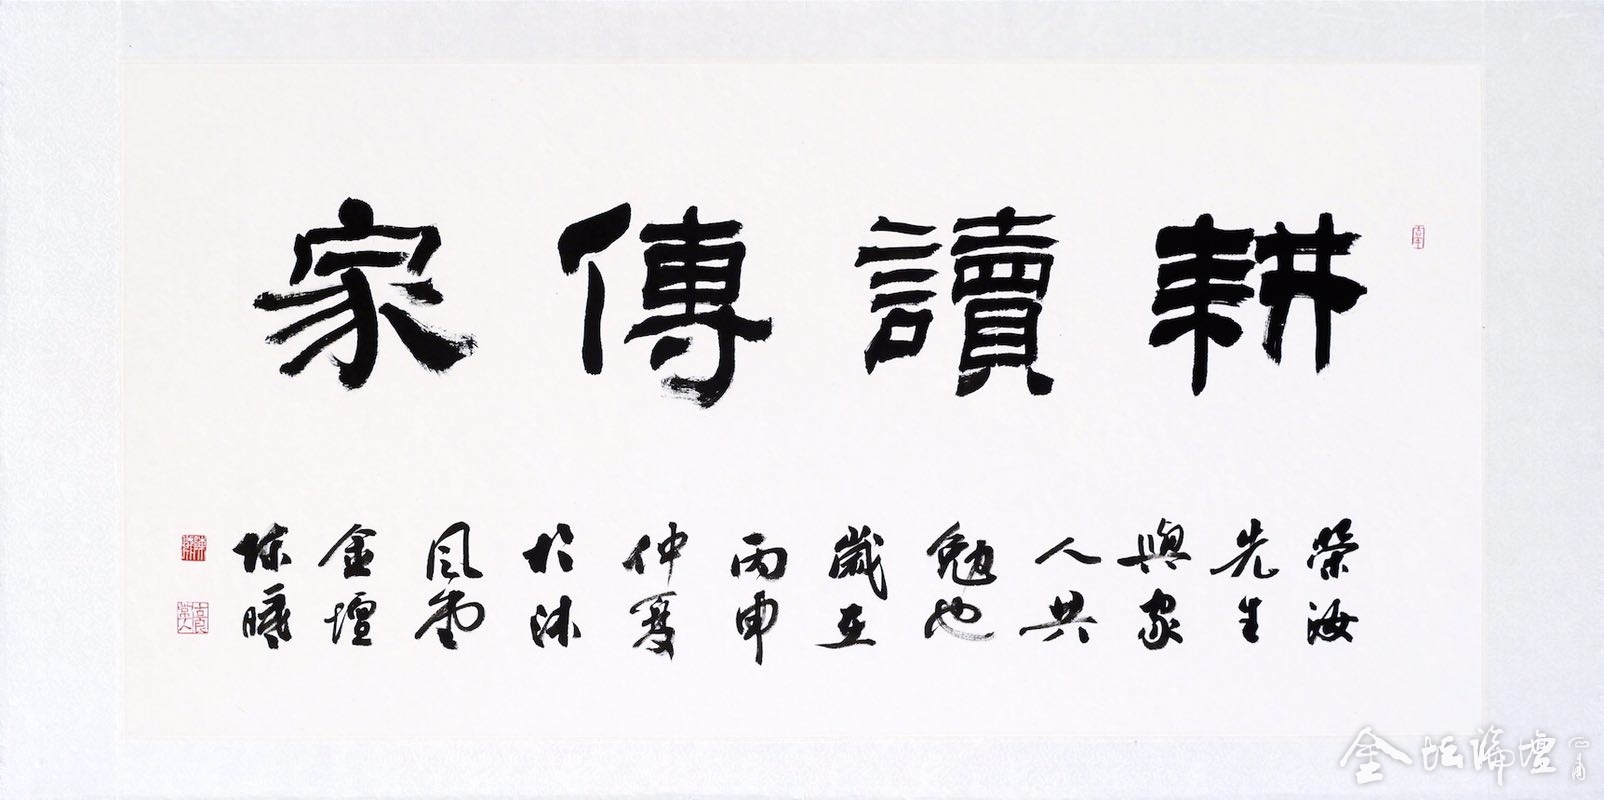 耕讀傳家
榮汝
先生
與家
人共
勉也
歲在
丙申
仲夏
於沐
風堂
金壇
陳曉
金坛論壇